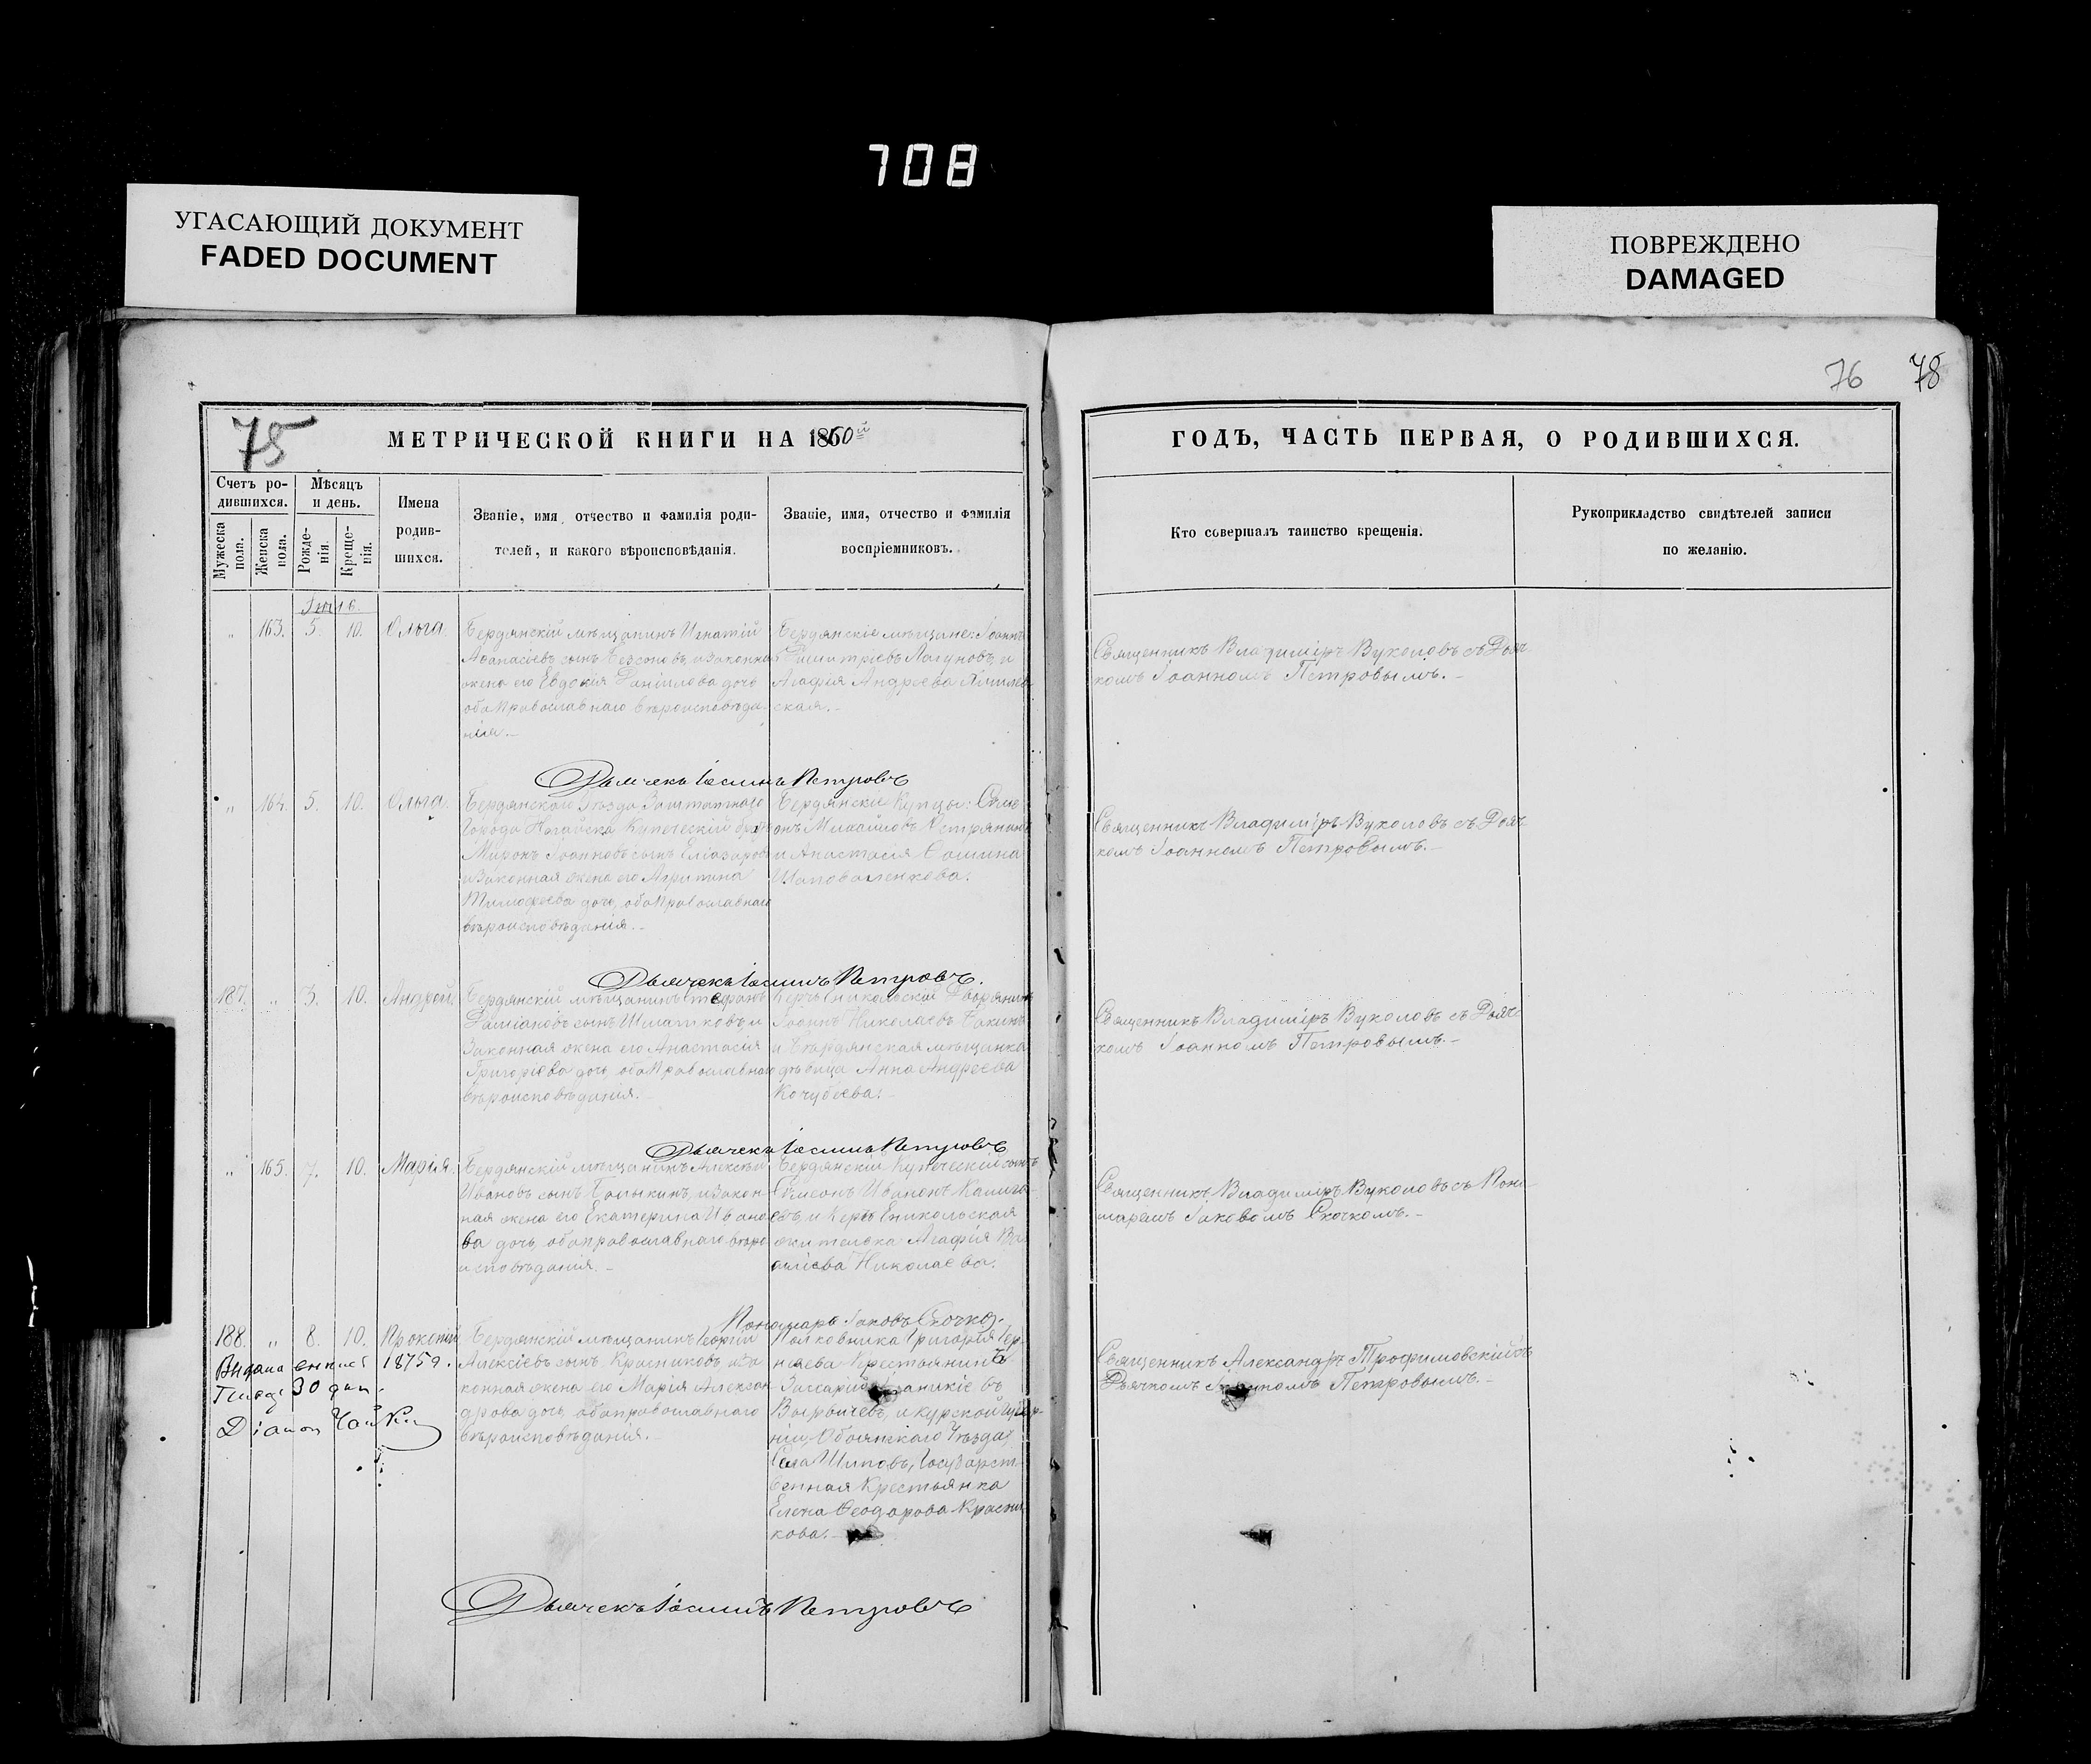 708
УГАСАЮЩИЙ ДОКУМЕНТ
FADED DOCUMENT
ПОВРЕЖДЕНО
DAMAGED
76 78
75
МЕТРИЧЕСКОЙ КНИГИ НА 1860й
ГОДЪ, ЧАСТЬ ПЕРВАЯ, О РОДИВШИХСЯ.
Счетъ ро-
дившихся.
Мужеска
пола.
Женска
пола.
Мѣсяцъ
и день.
Рожде-
нія.
Креще-
нія.
Имена
родив-
шихся.
Званіе, имя, отчество и фамилія роди-
телей, и какого вѣроисповѣданія.
Званіе, имя, отчество и фамилія
воспріемниковъ.
Кто совершалъ таинство крещенія.
Рукоприкладство свидѣтелей записи
по желанію.
„ 163. 5. 10. Ольга.
Бердянскій мѣщанинъ Игнатій
Аѳанасіевъ сынъ Безсоновъ, и законная
жена его Евдокія Даніилова дочь
оба Православнаго вѣроисповѣда-
нія.-
Бердянскіе мѣщане: Іоаннъ
Димитріевъ Лагуновъ, и
Агафія Андреева
ская.-
Священникъ Владиміръ Вуколовъ съ Дьяч-
комъ Іоанномъ Петровымъ.-
Дьячекъ Іоаннъ Петровъ
„ 164. 5. 10. Ольга.
Бердянскаго Уѣзда Заштатнаго
Города Ногайска Купеческій братъ
Миронъ Іоанновъ сынъ Еліазаровъ
и Законная жена его Агрипина
Тимофеева дочь, оба Православнаго
вѣроисповѣданія.-
Бердянскіе Купцы: Симе-
онъ Михайловъ
и Анастасія Фомина
Шаповаленкова.
Священникъ Владиміръ Вуколовъ съ Дьяч-
комъ Іоанномъ Петровымъ.-
Дьячекъ Іоаннъ Петровъ.
187. „ 3. 10. Андрей.
Бердянскій мѣщанинъ Стефанъ
Даміановъ сынъ Шматковъ и
Законная жена его Анастасія
Григоріева дочь, оба Православнаго
вѣроисповѣданія.-
Керчь Еникольскій Дворянинъ
Іоаннъ Николаевъ
и Бердянская мѣщанка
дѣвица Анна Андреева
Кочубеева.
Священникъ Владиміръ Вуколовъ съ Дьяч-
комъ Іоанномъ Петровымъ.-
Дьячекъ Іоаннъ Петровъ
„ 165. 7. 10. Марія.
Бердянскій мѣщанинъ Алексѣй
Ивановъ сынъ и закон-
ная жена его Екатерина Ивано-
ва дочь, оба православнаго вѣро-
исповѣданія.-
Бердянскій Купеческій сынъ
Симеонъ Ивановъ
и Керчь Еникольская
жителька Агафія Ва-
силіева Николаева.
Священникъ Владиміръ Вуколовъ съ Поно-
маремъ Іаковомъ Скочкомъ.-
Пономарь Іаковъ Скочко.
188. „ 8. 10. Прокопій
Бердянскій мѣщанинъ Георгій
Алексіевъ сынъ Красниковъ и за-
конная жена его Марія Алексан-
дрова дочь, оба православнаго
вѣроисповѣданія.-
Полковника Григорія Чер-
няева Крестьянинъ
и Курской Губер-
ніи, Обоянскаго Уѣзда,
Села Государст-
венная Крестьянка
Елена Феодорова Красни-
кова.-
Священникъ Александръ Трофимовскій съ
Дьячкомъ Іоанномъ Петровымъ.-
1875г.
30 дня.
Дьячекъ Іоаннъ Петровъ